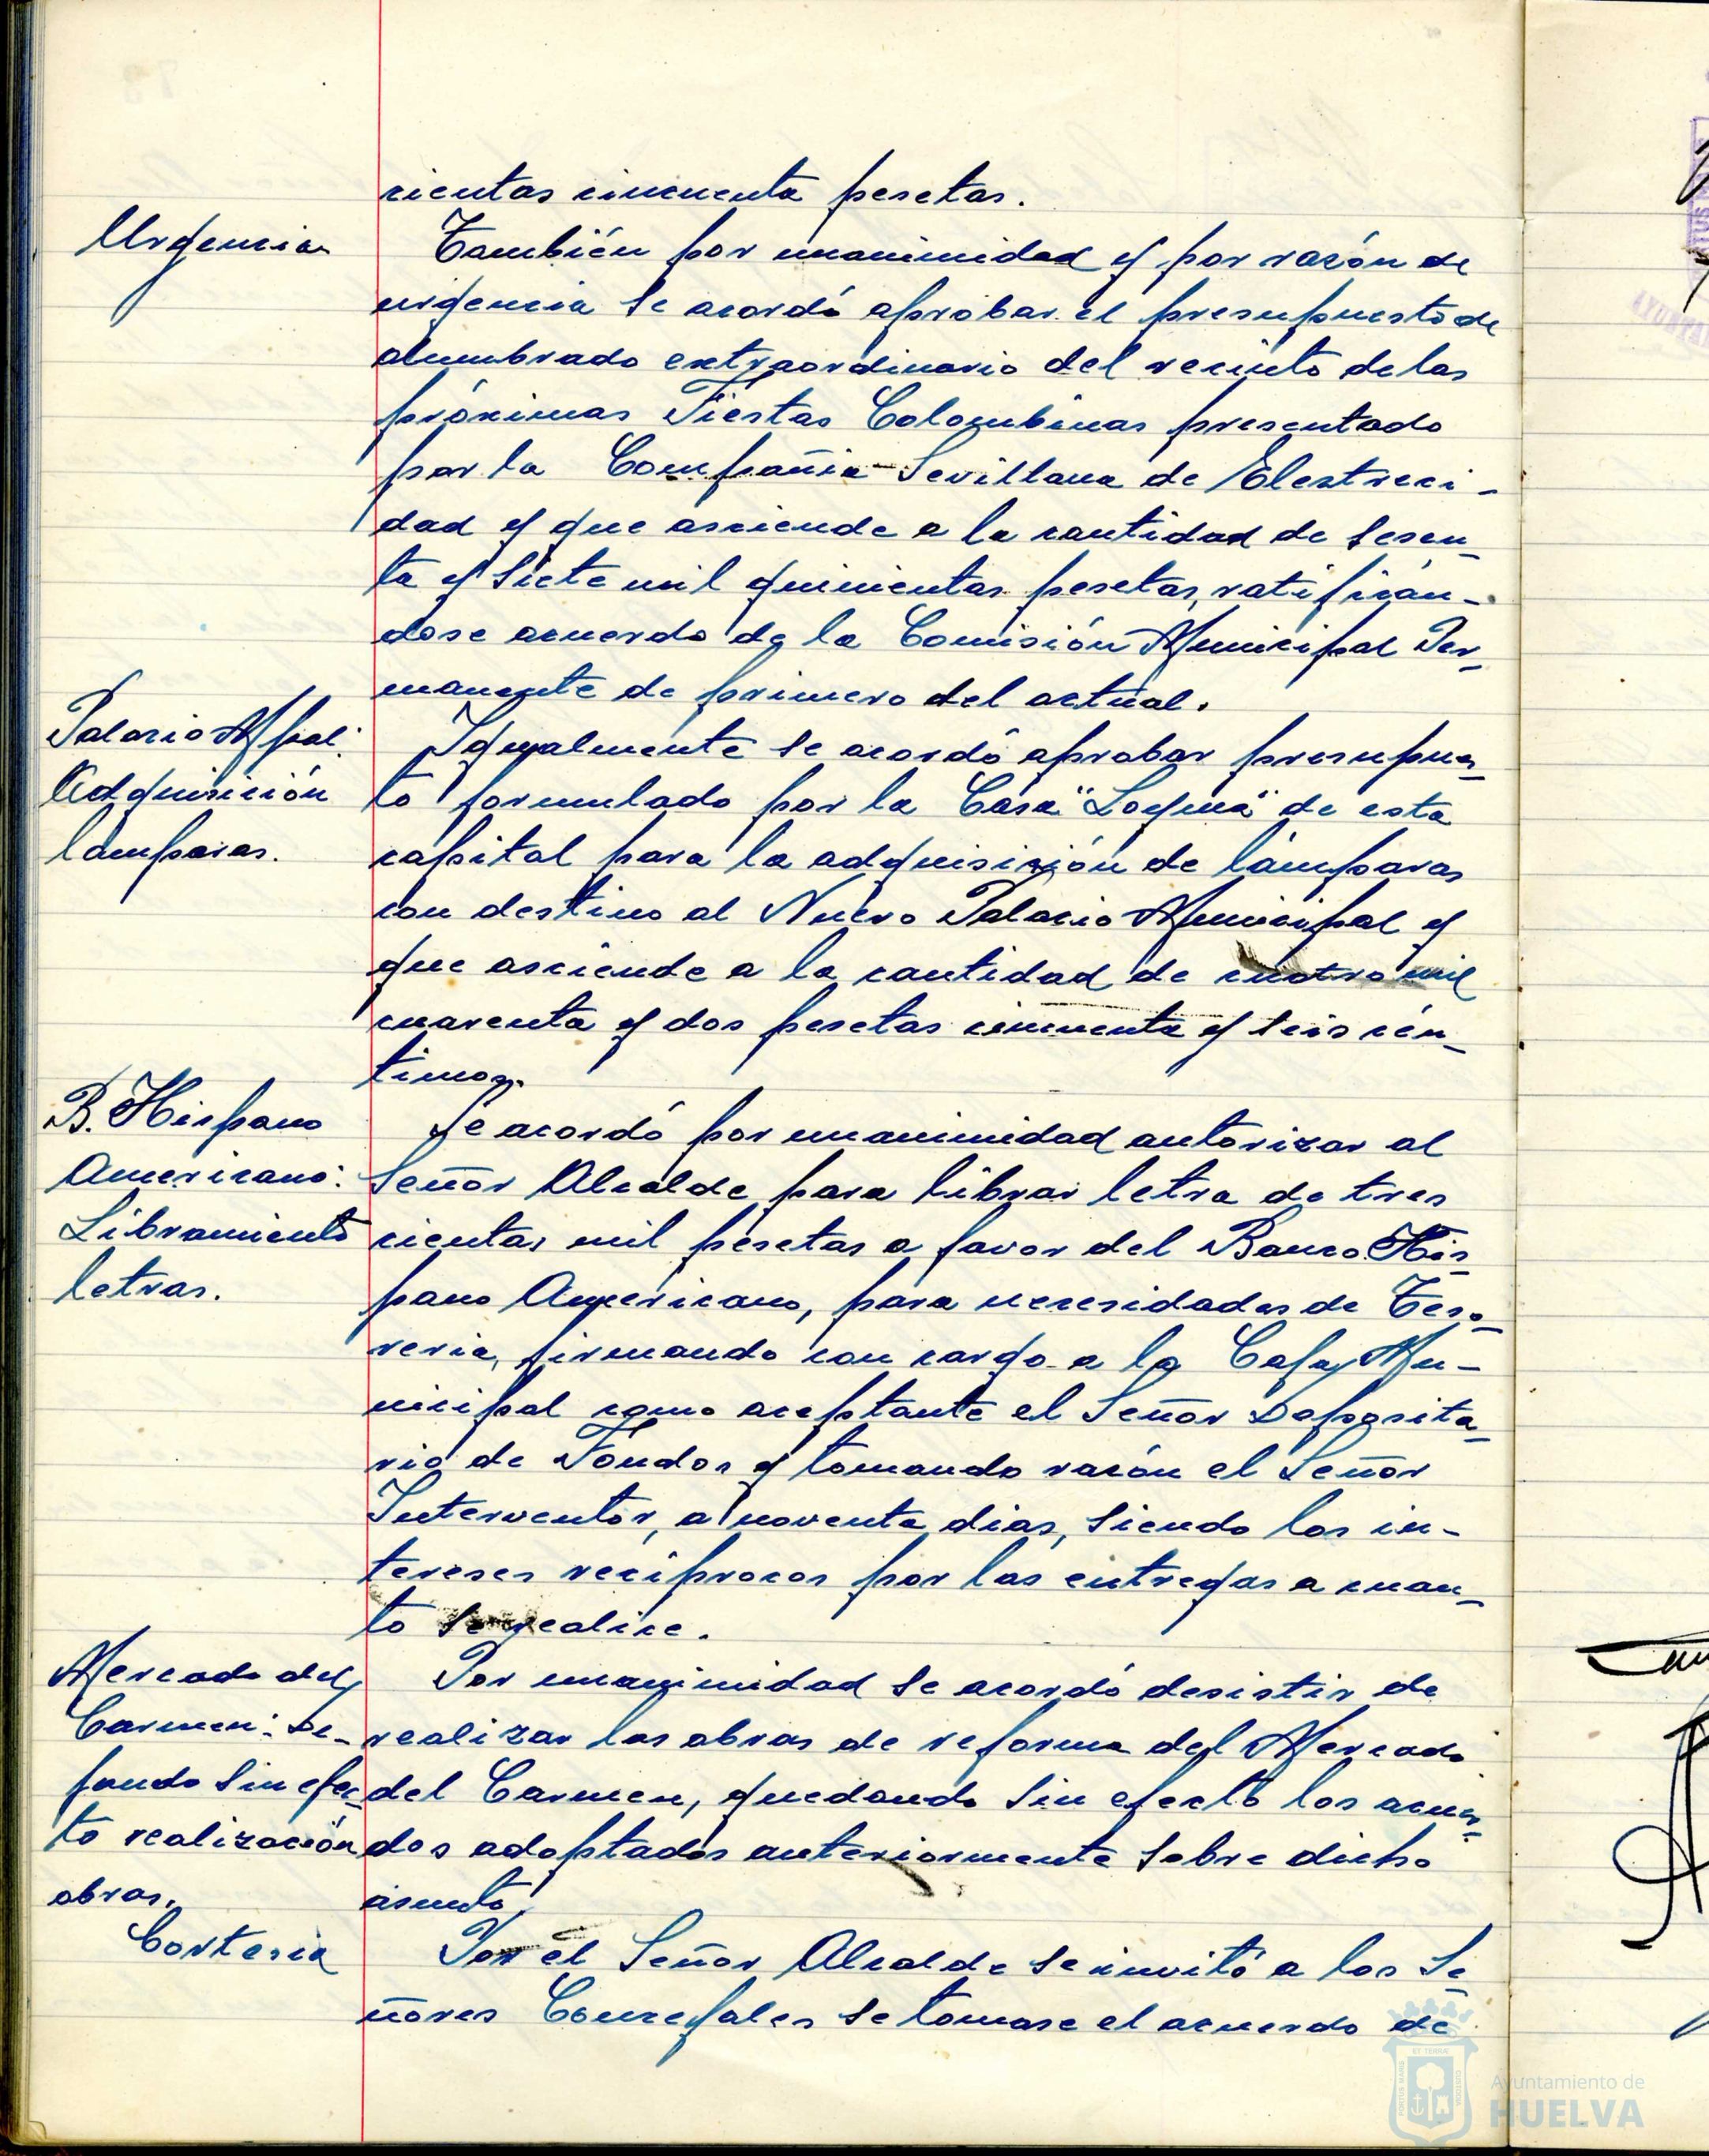 cientas cincuenta pesetas.
Urgencia
También por unanimidad y por razón de
urgencia se acordó aprobar el presupuesto de
alumbrado extraordinario del recinto de las
próximas Fiestas Colombinas presentado
por la Compañía Sevillana de Electrici-
dad y que asciende a la cantidad de sesen-
ta y siete mil quinientas pesetas, ratifican-
dose acuerdo de la Comisión Municipal Per-
manente de primero del actual.
Palacio Mpal.
Adquisición
lamparas.
Igualmente se acordó aprobar presupues-
to formulado por la Casa "Loqma" de esta
capital para la adquisición de lámparas
con destino al Nuevo Palacio Municipal y
que asciende a la cantidad de cuatro mil
cuarenta y dos pesetas cincuenta y seis cén-
timos.
B. Hispano
Americano:
Libramiento
letras.
Se acordó por unanimidad autorizar al
Señor Alcalde para librar letra de tres
cientas mil pesetas a favor del Banco His-
pano Americano, para necesidades de Teso-
reria, firmando con cargo a la Caja Mu-
nicipal como aceptante el Señor Deposita-
rio de Fondos y tomando razón el Señor
Interventor, a noventa dias, siendo los in-
tereses recíprocos por las entregas a cuan-
to se realice.
Mercado del
Carmen: De-
jando sin efec-
to realización
obras.
Por unanimidad se acordó desistir de
realizar las obras de reforma del Mercado
del Carmen, quedando sin efecto los acuer-
dos adoptados anteriormente sobre dicho
asunto.
Cortesia
Por el Señor Alcalde se invitó a los Se-
ñores Concejales se tomase el acuerdo de
Ayuntamiento de
HUELVA